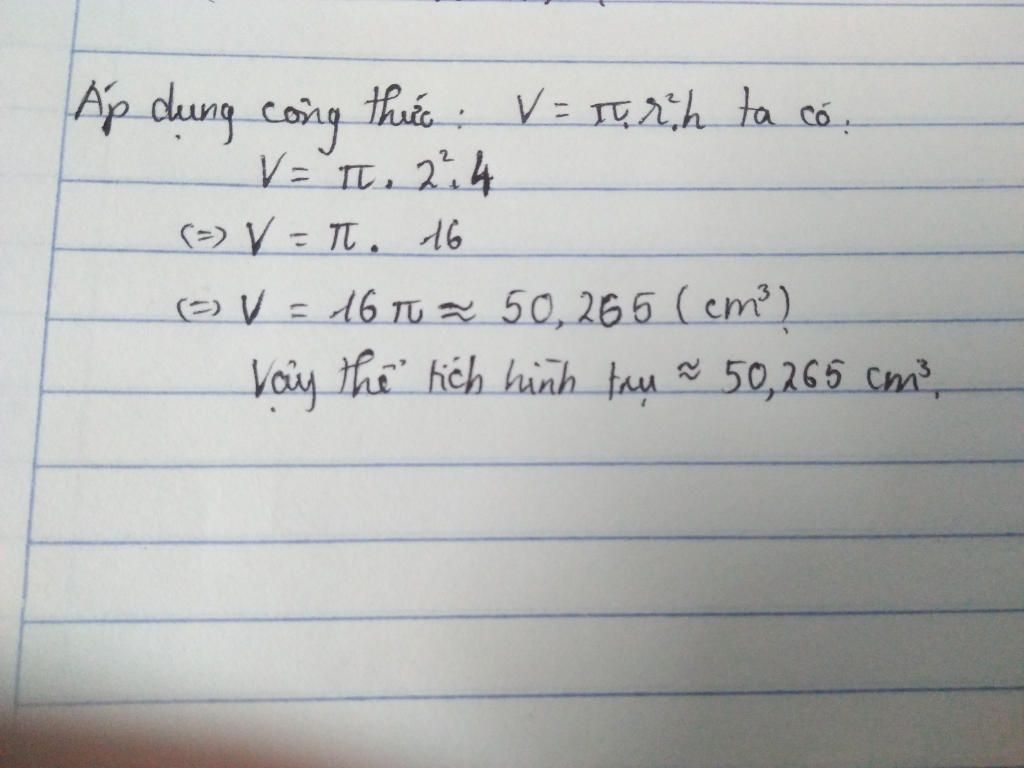 Áp dụng công thức: V = π.r².h ta có:
V = π. 2².4
(=) V = π. 16
(=) V = 16π ≈ 50,265 (cm³)
Vậy thể tích hình trụ ≈ 50,265 cm³.